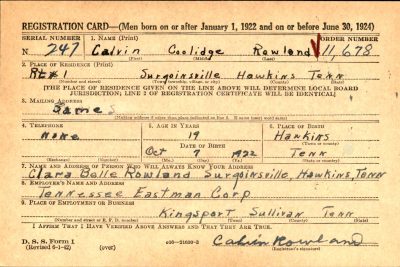 REGISTRATION CARD—(Men born on or after January 1, 1922 and on or before June 30, 1924)
SERIAL NUMBER 1. NAME (Print) ORDER NUMBER
N 247 Calvin Coolidge Rowland 11,678
(First) (Middle) (Last)
2. PLACE OF RESIDENCE (Print)
Rt#1 Surgoinsville Hawkins Tenn
(Number and street) (Town, township, village, or city) (County) (State)
[THE PLACE OF RESIDENCE GIVEN ON THE LINE ABOVE WILL DETERMINE LOCAL BOARD
JURISDICTION; LINE 2 OF REGISTRATION CERTIFICATE WILL BE IDENTICAL]
3. MAILING ADDRESS
Same
[Mailing address if other than place indicated on line 2. If same insert word same]
4. TELEPHONE 5. AGE IN YEARS 6. PLACE OF BIRTH
None 19 Hawkins
DATE OF BIRTH (Town or county)
Oct 7 1922 Tenn
(Exchange) (Number) (Mo.) (Day) (Yr.) (State or country)
7. NAME AND ADDRESS OF PERSON WHO WILL ALWAYS KNOW YOUR ADDRESS
Clara Belle Rowland Surgoinsville, Hawkins, Tenn
8. EMPLOYER'S NAME AND ADDRESS
Tennessee Eastman Corp
9. PLACE OF EMPLOYMENT OR BUSINESS
Kingsport Sullivan Tenn
(Number and street or R. F. D. number) (Town) (County) (State)
I AFFIRM THAT I HAVE VERIFIED ABOVE ANSWERS AND THAT THEY ARE TRUE.
D. S. S. Form 1
(Revised 6-1-42) (over) Calvin Rowland
(Registrant's signature)